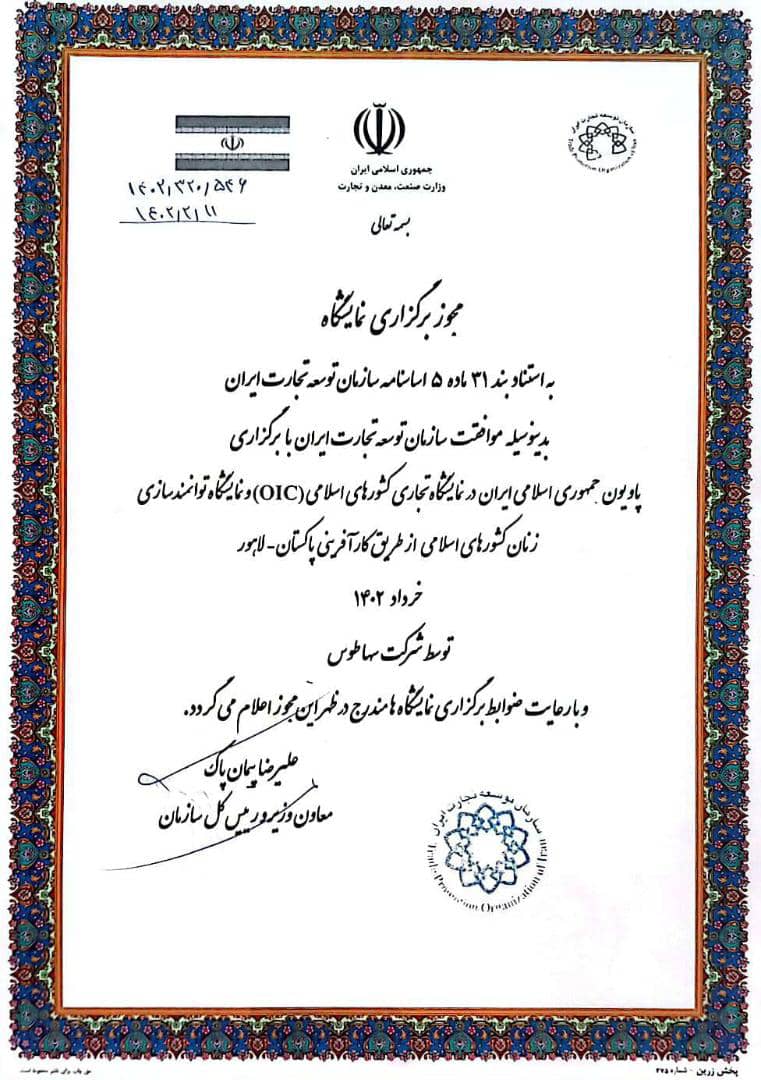 جمهوری اسلامی ایران
وزارت صنعت، معدن و تجارت
سازمان توسعه تجارت ایران
Trade Promotion Organization of Iran
۱۴۰۲/۳۲۰/۵۴۶
۱۴۰۲/۲/۱۱
بسمه تعالی
مجوز برگزاری نمایشگاه
به استناد بند ۳۱ ماده ۵ اساسنامه سازمان توسعه تجارت ایران
بدینوسیله موافقت سازمان توسعه تجارت ایران با برگزاری
پاویون جمهوری اسلامی ایران در نمایشگاه تجاری کشورهای اسلامی (OIC) و نمایشگاه توانمندسازی
زنان کشورهای اسلامی از طریق کارآفرینی پاکستان - لاهور
خرداد ۱۴۰۲
توسط شرکت سهاطوس
و با رعایت ضوابط برگزاری نمایشگاه ها مندرج در ظهر این مجوز اعلام می گردد.
علیرضا پیمان پاک
معاون وزیر و رییس کل سازمان
سازمان توسعه تجارت ایران
Trade Promotion Organization of Iran
پخش زرین - شماره ۲۷۵
حق چاپ برای ناشر محفوظ است.